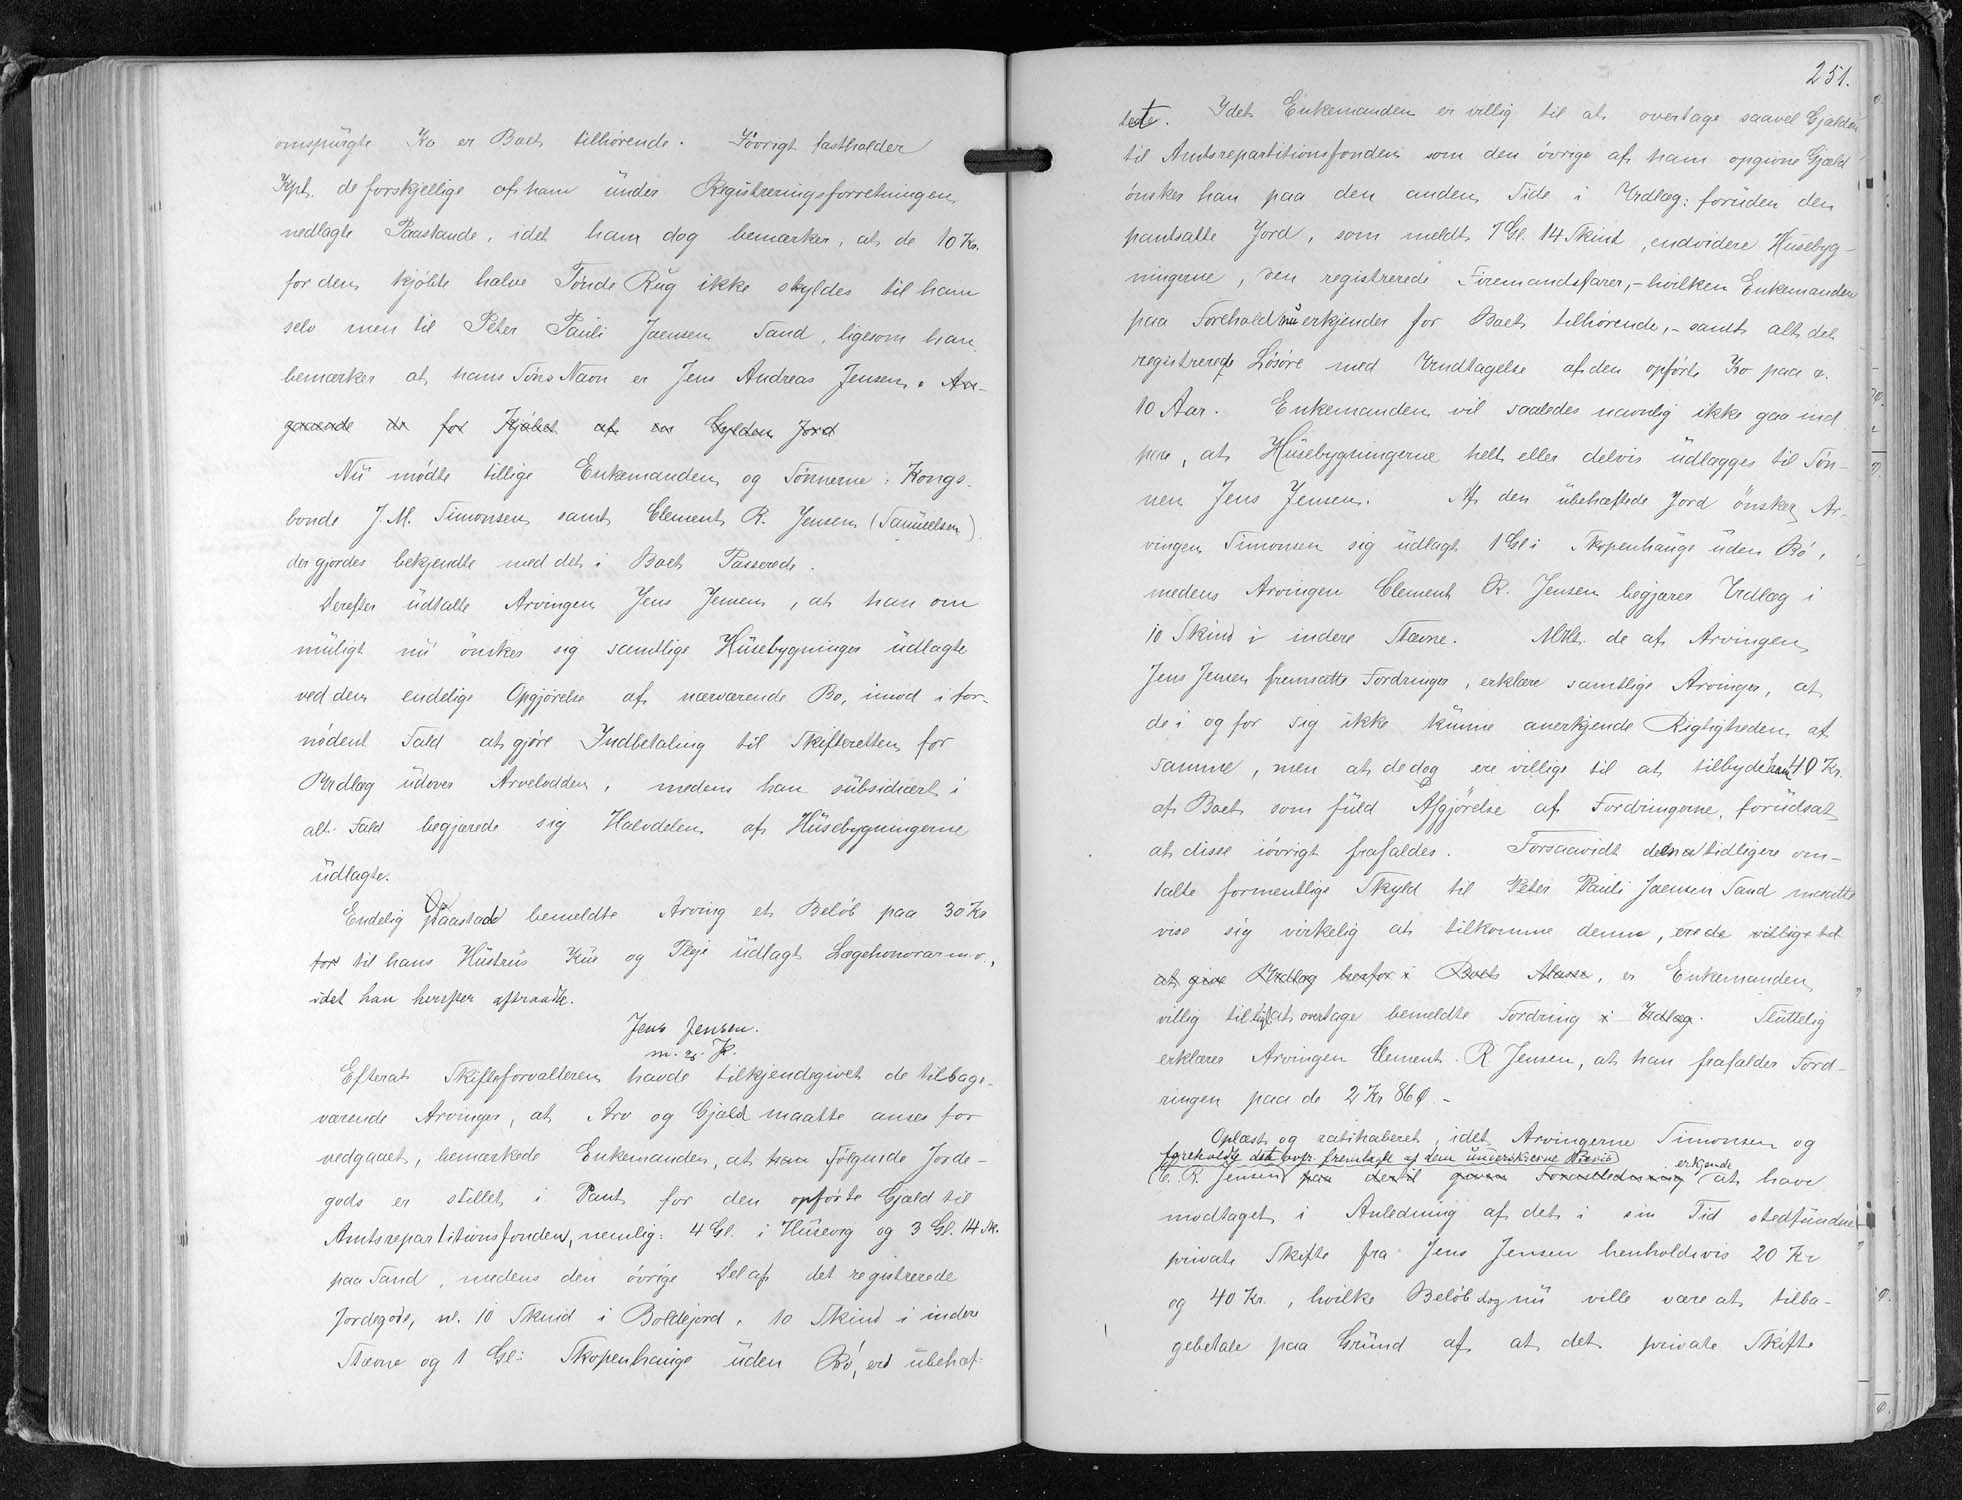 omspurgte Ko er Boets tilhørende. Iøvrigt fastholder
Kpt. de forskjellige af ham under Registreringsforretningen
nedlagte Paastande, idet han dog bemærker, at de 10 Kr.
for den kjøbte halve Tønde Rug ikke skyldes til ham
selv men til Peter Pauli Joensen Sand, ligesom han
bemærker at hans Søns Navn er Jens Andreas Jensen. An-
gaaende de for Kjøbet af en Gylden Jord
Nu mødte tillige Enkemanden og Sønnerne: Kongs-
bonde J. M. Simonsen samt Clement R. Jensen (Samuelsen)
der gjordes bekjendte med det i Boet Passerede.
Derefter udtalte Arvingen Jens Jensen, at han om
muligt nu ønsker sig samtlige Husebygninger udlagte
ved den endelige Opgjørelse af nærværende Bo, imod i for-
nødent Fald at gjøre Indbetaling til Skifteretten for
Udlæg udover Arvelodden, medens han subsidiært i
alt Fald begjærede sig Halvdelen af Husebygningerne
udlagte.
Endelig paastod bemeldte Arving et Beløb paa 30 Kr
for til hans Hustrus Kur og Pleje udlagt Lægehonorar m.v.,
idet han herefter aftraadte.
Jens Jensen.
m. f. P.
Efterat Skifteforvalteren havde tilkjendegivet de tilbage-
værende Arvinger, at Arv og Gjæld maatte anses for
vedgaaet, bemærkede Enkemanden, at han Følgende Jorde-
gods er stillet i Pant for den opførte Gjæld til
Amtsrepartitionsfonden, nemlig: 4 Gl. i Husevig og 3 Gl. 14 Sk.
paa Sand, medens den øvrige Del af det registrerede
Jordegods, nl. 10 Skind i Boldejord, 10 Skind i indere
Stævne og 1 Gl: Skopenhauge uden Bø, er ubehæf-
251.
tet. Idet Enkemanden er villig til at overtage saavel Gjælden
til Amtsrepartitionsfonden som den øvrige af ham opgivne Gjæld
ønsker han paa den anden Side i Udlæg: foruden den
pantsatte Jord, som meldt 7 Gl. 14 Skind, endvidere Husebyg-
ningerne, den registrerede Firemandsfarer,- hvilken Enkemanden
paa Forehold nu erkjender for Boets tilhørende,- samt alt det
registrerede Løsøre med Undtagelse af den opførte Ko paa c.
10 Aar. Enkemanden vil saaledes navnlig ikke gaa ind
paa, at Husebygningerne helt eller delvis udlægges til Søn-
nen Jens Jensen. Af den ubehæftede Jord ønsker Ar-
vingen Simonsen sig udlagt 1 Gl i Skopenhauge uden Bø,
medens Arvingen Clement R. Jensen begjærer Udlæg i
10 Skind i indere Stævne. Mht. de af Arvingen
Jens Jensen fremsatte Fordringer, erklære samtlige Arvinger, at
de i og for sig ikke kunne anerkjende Rigtigheden af
samme, men at de dog ere villige til at tilbyde ham 40 Kr.
af Boet som fuld Afgjørelse af Fordringerne, forudsat
at disse iøvrigt frafaldes. Forsaavidt den tidligere om-
talte formentlige Skyld til Peter Pauli Joensen Sand maatte
vise sig virkelig at tilkomme denne, ere de villige til
at give Udlæg herfor i Boets Masse, er Enkemanden
villig til ligel. at overtage bemeldte Fordring i Udlæg. Sluttelig
erklærer Arvingen Clement R Jensen, at han frafalder Ford-
ringen paa de 2 Kr 86 Ø. -
Oplæst og ratihaberet, idet Arvingerne Simonsen og
foreholdt det ovfr. fremlagte af dem underskrevne Bevis
C. R. Jensen paa dertil given Foranledning erkjende at have
modtaget i Anledning af det i sin Tid stedfundne
private Skifte fra Jens Jensen henholdsvis 20 Kr
og 40 Kr., hvilke Beløb dog nu ville være at tilba-
gebetale paa Grund af at det private Skifte